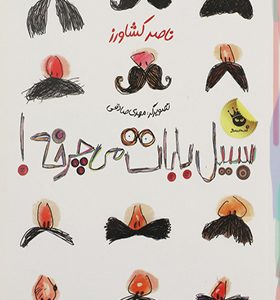 ناصر کشاورز
تصویرگر: مهدی صادقی
سیبیل بابات می‌چرخه!